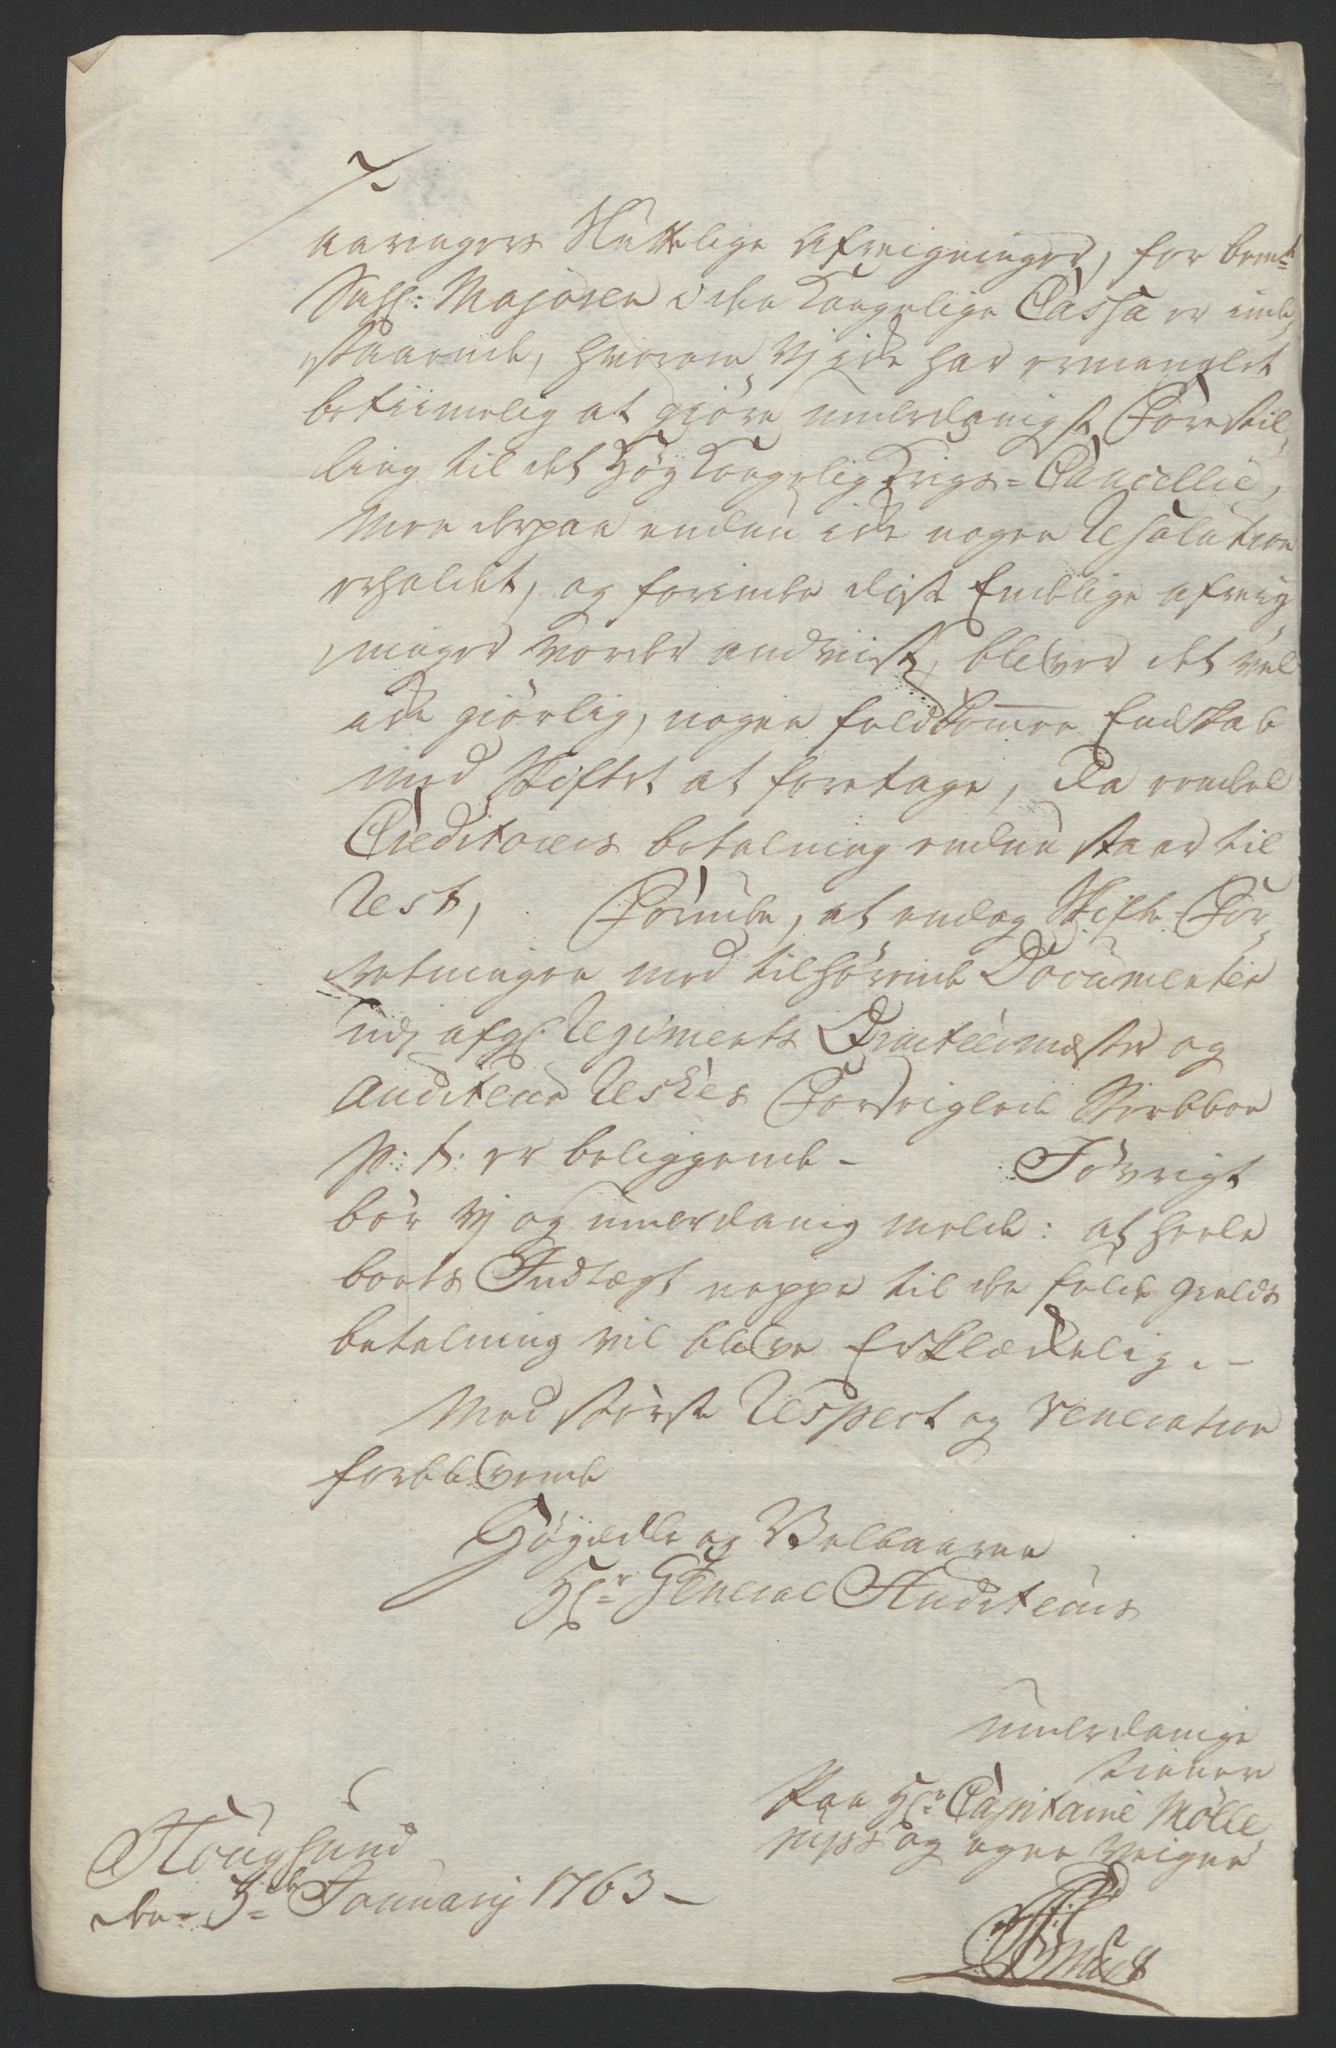 7.
aaringers Nættelige Afreigninger, for bem:t
Sahl: Majoren i den Kongelige Cassa er inde,
staaende, hvorom Vj icke har ermanglet
betiimelig at giöre underdanigst Forestil,
ling til det Höy Kongelig Krigs=Cancellie,
Men derpaa endnu icke nogen Resolution
erholdet, og forinden disse Endelige afreig
ninger vorder andviist, bliver det vel
icke giörlig, nogen fuldkommen Endskab
med Skiftet at foretage, da eendeel
Creditorers betalning endnu staar til
Rest, Foruden, at endog Skifte For,
retningen med tilhörende Documenter
udj afg: Regiments Qvarteermester og
Auditeur Reskes Forseiglede Sterbboe
p: t: er beliggende - Iövrigt
bör Vj og underdanig melde: at heele
boets Indtægt neppe til den fulde Gields
betalning vil blive Erklækkelig. -
Med störste Respect og Veneration
forblivende
Höyædle og Velbaarne
Hr: General Auditeurs
underdanige
tienere
Paa Hr: Capitaine Mölle,
rups og egne Veigne
Hougsund
den 3de January 1763 -